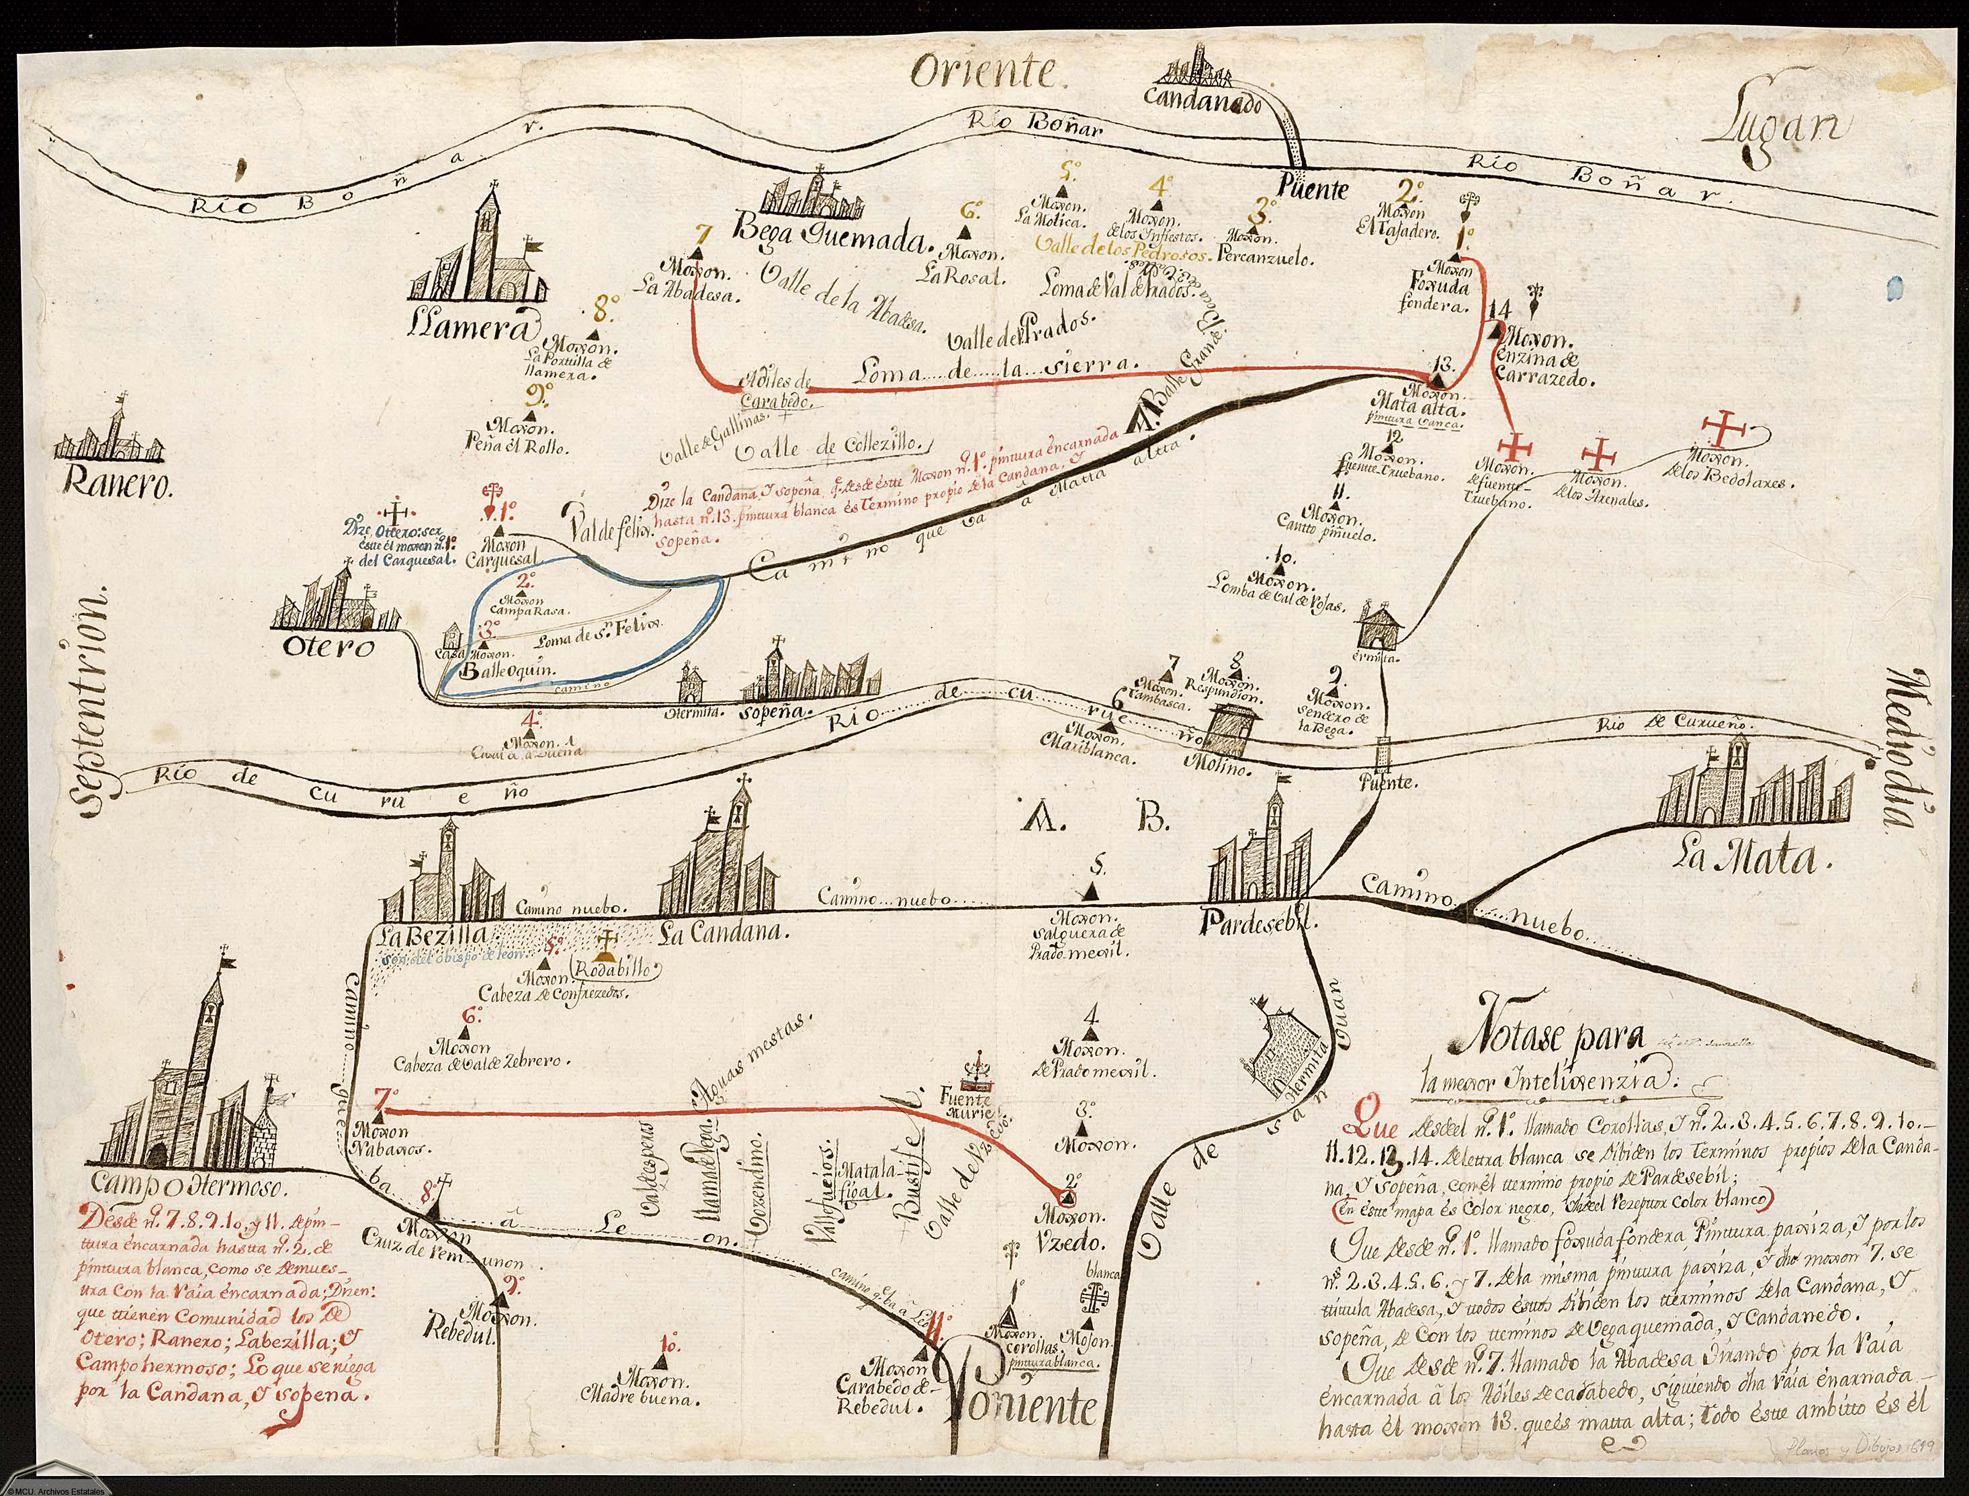 Oriente.
Candanedo
Lugan
Río Boñar
Río Boñar.
Río Boñar.
Puente
5º.
Moxon.
La Motica.
4º
Moxon.
de los Ynfiestos.
3º.
Moxon.
Percanzuelo.
2º.
Moxon
El Tajadero.
1º.
Moxon
Foxuda
fondera.
6º.
Moxon.
La Rosal.
Bega Quemada.
7
Moxon.
La Abadesa.
Valle de los Pedrosos.
Loma de Val de Prados.
Valle de la Abadesa.
Valle de Prados.
LLamera
8º
Moxon.
La Portilla de
llamera.
14
Moxon.
Enzina de
Carrazedo.
Loma de la Sierra.
Adiles de
Carabedo.
13.
Moxon.
Mata alta.
pintura blanca.
9º.
Moxon.
Peña el Rollo.
Valle de Gallinas.
Valle de Collezillo.
A. Balle Grande
12
Moxon.
fuente truebano.
Moxon.
de fuente
truebano.
Moxon.
de los Arenales.
Moxon.
de los Bedolares.
Ranero.
Dize la Candana, y Sopeña, q.e desde este Moxon nº. 1º. pintura encarnada
hasta nº. 13. pintura blanca és termino propio de la Candana, y
Sopeña.
Valdefelix.
11.
Moxon.
Cautto piñuelo.
Dize Otero: ser
este él moxon nº. 1º.
del Carquesal.
1º.
Moxon
Carquesal
2º.
Moxon
Campa Rasa.
Camino que va a Matta altta.
10.
Moxon.
Lomba de Val de Vojas.
Otero
Casa
3º
Moxon.
Balleoquin.
Loma de Sn. Felix.
camino
Hermita.
Sopeña.
Ermita.
Septentrion.
Medio dia.
4º.
Moxon.
7
Moxon.
Cambasca.
8
Moxon.
Respundion.
9.
Moxon.
Sendero de
la Bega.
6
Moxon.
Mariblanca.
Molino.
Puente.
Río de Curueño
Río de Curueño
Río de Curueño.
La Mata.
A. B.
5.
Moxon.
Salguera de
Prado mexil.
La Bezilla
Camino nuebo.
La Candana.
Camino nuebo
Pardesebil.
Camino nuebo
Son del obispo de leon.
5º
Moxon
Rodabillo
Cabeza de Confrezedos.
6º.
Moxon
Cabeza de Val de Zebrero.
Camino que
ba
â Leon.
Aguas mestas.
4
Moxon.
de Prado mexil.
3º.
Moxon.
Hermita
Valle de San Juan
Fuente
Murie
Valle de Vzedo.
7º
Moxon
Nabaxos.
Valdespeus
Llama de Vega.
Gozendino.
Valleguejos.
Matala-
figal.
Bustifel.
2º
Moxon.
Vzedo.
Campo Hermoso.
8º
Moxon
Cruz de rem unon
9º.
Moxon.
Rebedul.
10.
Moxon.
Madre buena.
camino q.e ba â Leon
11º.
Moxon
Carabedo de
Rebedul.
1º
Moxon.
corollas.
pintura blanca.
blanca
Mojon.
Poniente
Desde nº. 7. 8. 9. 10. y 11. de pin-
tura encarnada hasta nº. 2. de
pintura blanca, como se demues-
tra con la raia éncarnada; Dizen:
que tienen Comunidad los de
Otero; Ranero; Labezilla; y
Campohermoso; Lo que se niega
por la Candana, y Sopeña.
Notase para
la mexor Intelixenzia.
Que desde el nº. 1º. llamado Corollas, y nº. 2. 3. 4. 5. 6. 7. 8. 9. 10.
11. 12. 13. 14. de letra blanca se dibiden los terminos propios de la Canda-
na, y Sopeña, con él termino propio de Pardesebil;
(En éste mapa és Color negro, Color blanco)
Que desde nº. 1º. llamado foxuda fondera Pintura paxiza, y por los
ns. 2. 3. 4. 5. 6. y 7. de la misma pintura paxiza, y dho moxon 7. se
titula Abadesa, y todos éstos dibiden los terminos de la Candana, y
Sopeña, de Con los terminos de Vegaquemada, y Candanedo.
Que desde nº. 7. llamado la Abadesa Guiando por la raia
encarnada â los Adiles de carabedo, siguiendo dha raia énarnada
hasta él moxon 13. que és matta alta; Todo éste ambitto és él
Planos y Dibujos 699
© MCU. Archivos Estatales